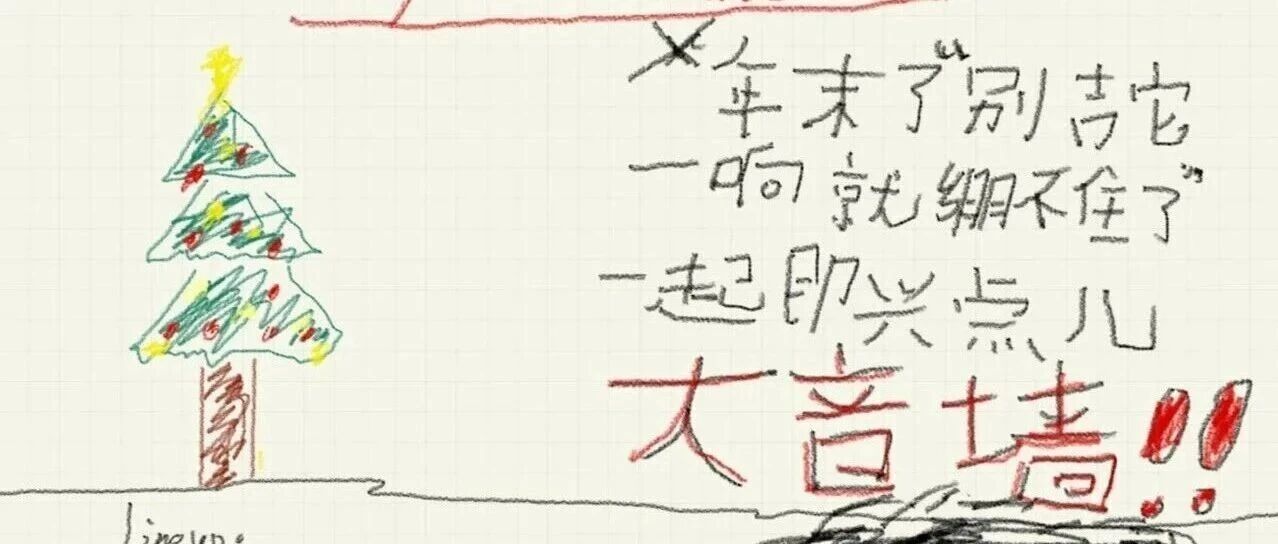 年末了“别吉它
一响就绷不住了”
一起即兴点儿
大音墙!!